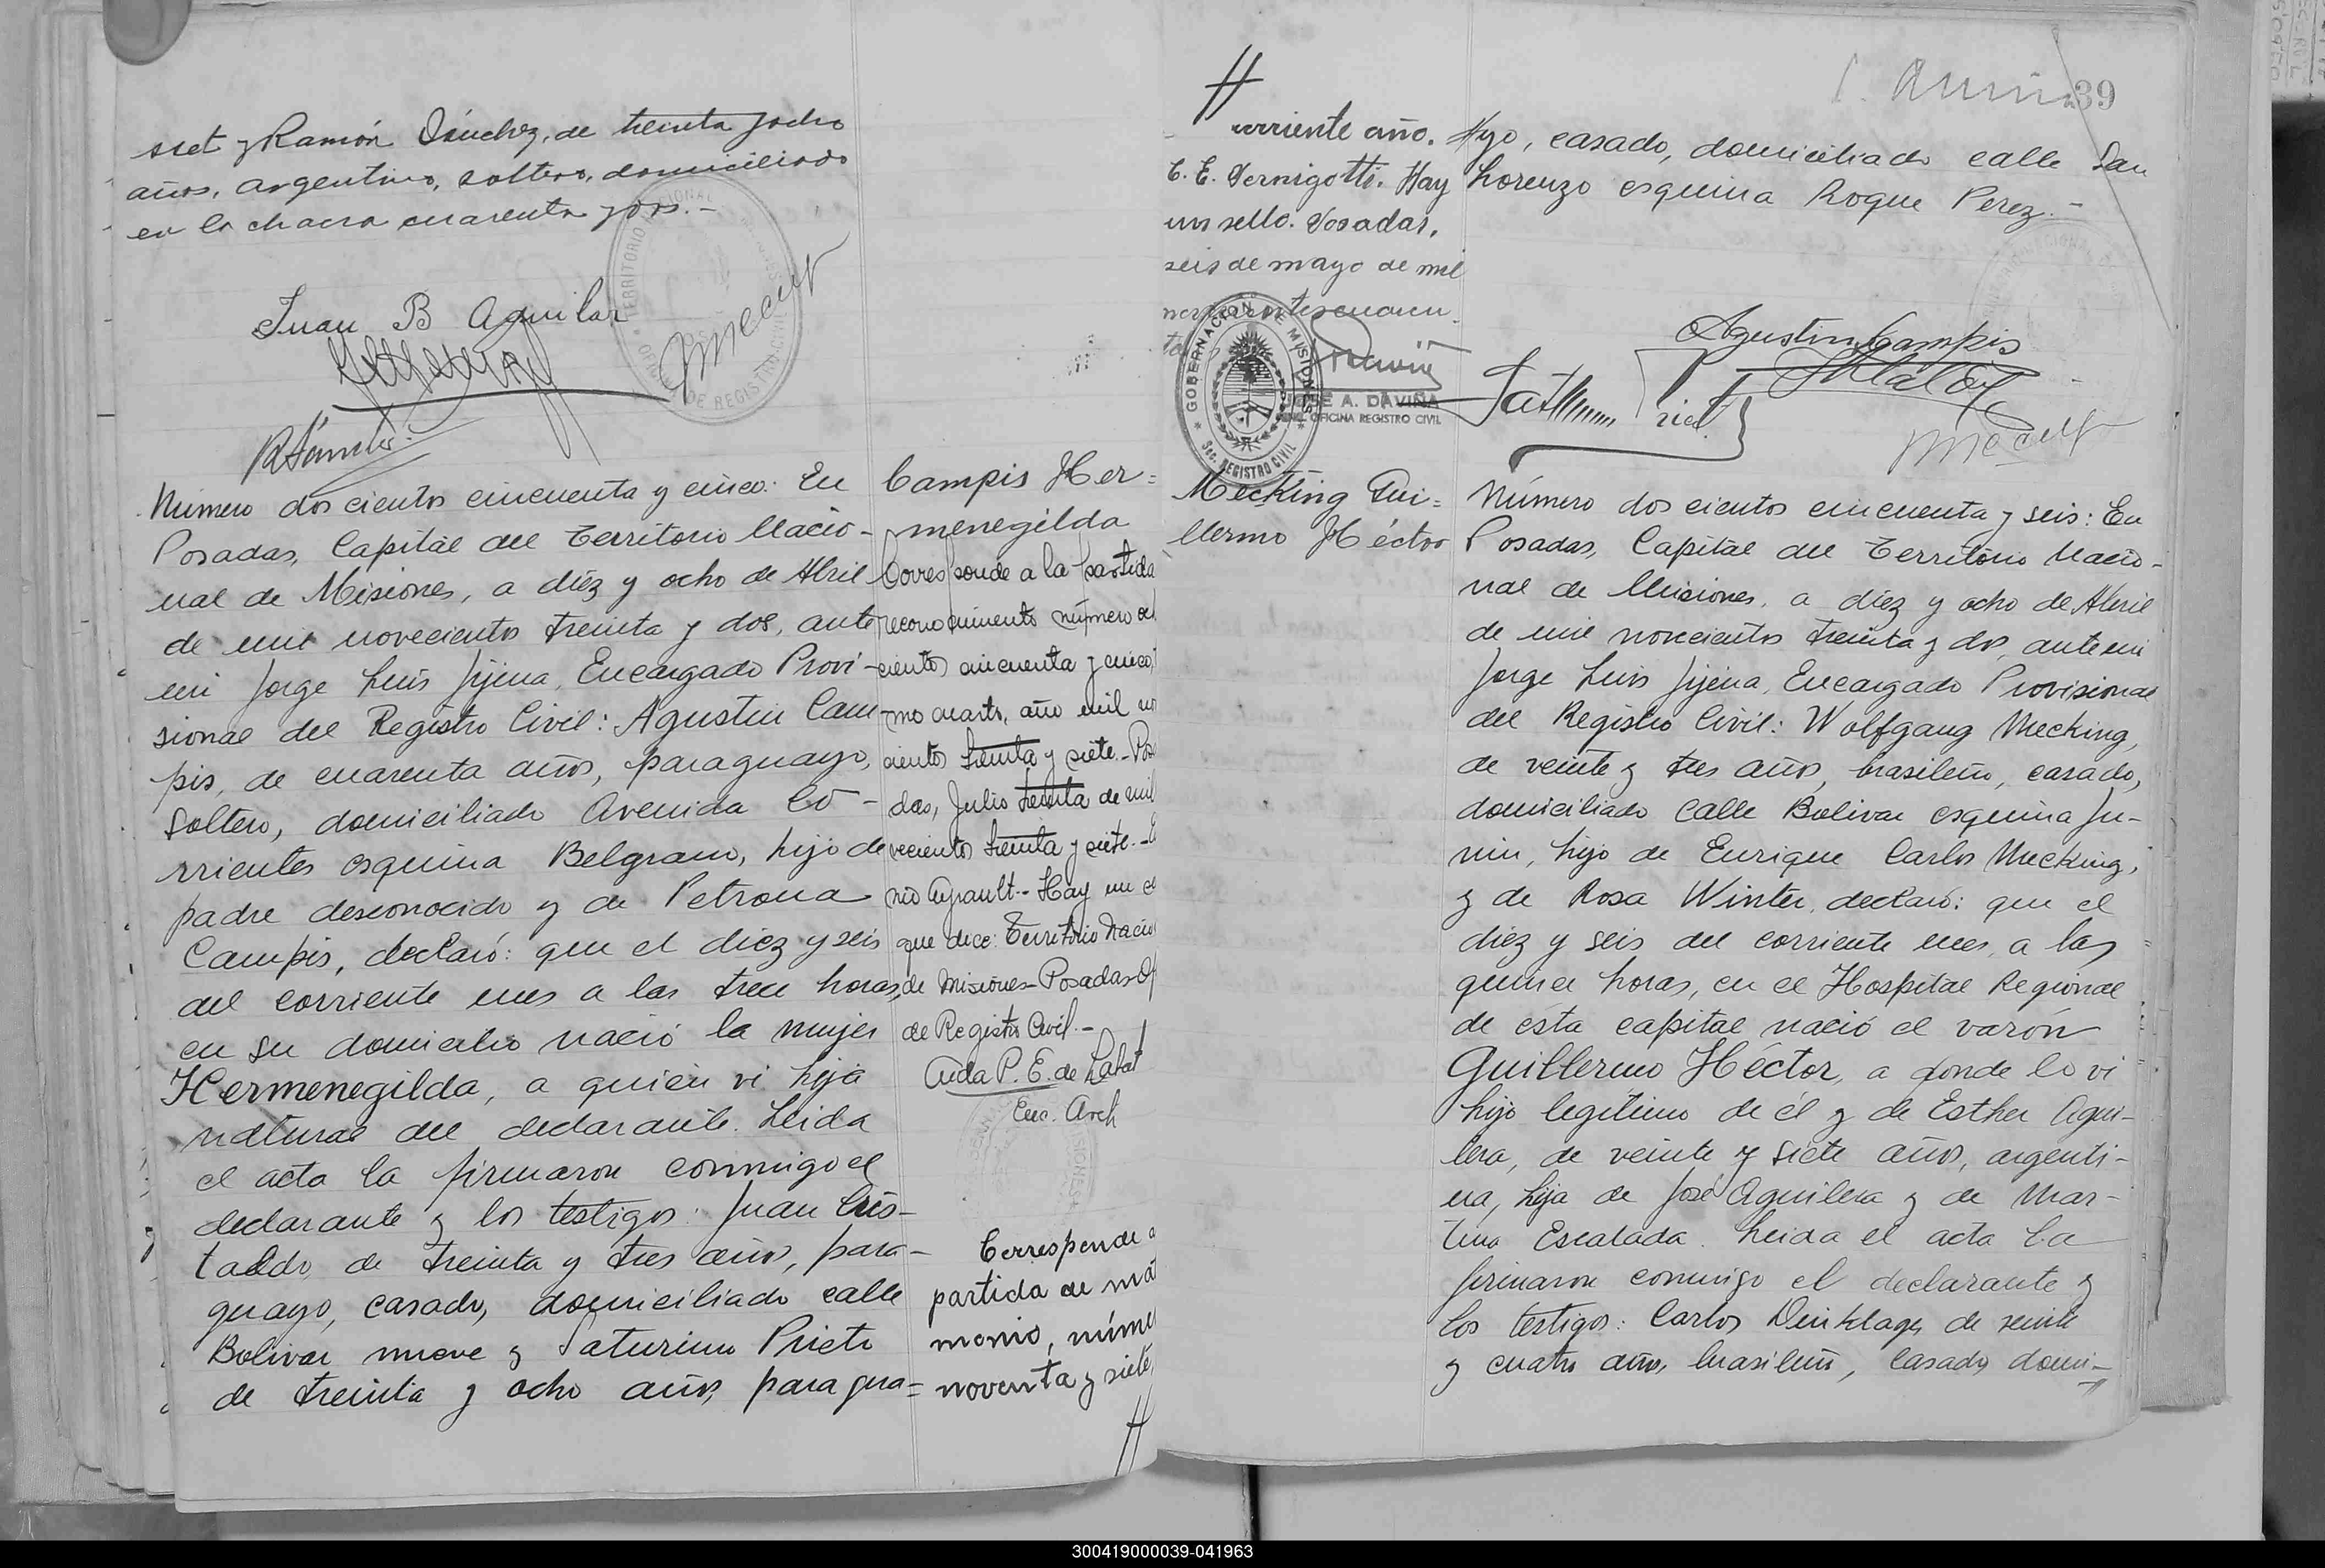 set y Ramón Sánchez, de treinta y ocho
años, argentino, soltero, domiciliado
en la chacra cuarenta y dos.-
Juan B Aguilar
RSánchez
Número dos cientos cincuenta y cinco: En
Posadas, Capital del Territorio Nacio-
nal de Misiones, a diéz y ocho de Abril
de mil novecientos treinta y dos, ante
mi Jorge Luis Jijena, Encargado Provi-
sional del Registro Civil: Agustin Cam-
pis, de cuarenta años, paraguayo,
soltero, domiciliado Avenida Co-
rrientes esquina Belgrano, hijo de
padre desconocido y de Petrona
Campis, declaró: que el diez y seis
del corriente mes a las trece horas,
en su domicilio nació la mujer
Hermenegilda, a quien vi hija
natural del declarante. Leida
el acta la firmaron conmigo el
declarante y los testigos: Juan Cris-
taldo, de treinta y tres años, para-
guayo, casado, domiciliado calle
Bolivar nueve y Saturnino Prieto
de treinta y ocho años, paragua=
Campis Her=
menegilda
Corresponde a la partida
reconocimiento número
cientos cincuenta y cinco,
mo cuarto, año mil no
cientos treinta y siete.-Posa
das, Julio treinta de mil
vecientos treinta y siete.-
Hay un
que dice: Territorio Nacio
de Misiones-Posadas-Of
de Registro Civil.-
Aida P. E. de Labat
Enc. Arch
Corresponde a
partida de mat
monio, núme
noventa y siete,
//
//
corriente año.
C. E. Vernigotti. Hay
un sello. Posadas,
seis de mayo de mil
novecientos cuaren-
ta
GOBERNACION DE MISIONES
Sec. REGISTRO CIVIL
JOSÉ A. DAVIÑA
OFICINA REGISTRO CIVIL
Mecking Gui=
llermo Héctor
39
yo, casado, domiciliado calle San
Lorenzo esquina Roque Perez.-
Agustin Campis
Número dos cientos cincuenta y seis: En
Posadas, Capital del Territorio Nacio-
nal de Misiones, a diéz y ocho de Abril
de mil novecientos treinta y dos, ante mi
Jorge Luis Jijena, Encargado Provisional
del Registro Civil: Wolfgang Mecking,
de veinte y tres años, brasileño, casado,
domiciliado calle Bolivar esquina Ju-
nin, hijo de Enrique Carlos Mecking,
y de Rosa Winter, declaró: que el
diéz y seis del corriente mes, a las
quince horas, en el Hospital Regional
de ésta capital nació el varón
Guillermo Héctor, a donde lo vi
hijo legítimo de él y de Esther Agui-
lera, de veinte y siete años, argenti-
na, hija de José Aguilera y de Mar-
tina Escalada. Leida el acta la
firmaron conmigo el declarante y
los testigos: Carlos Dinklages de veinte
y cuatro años, brasileño, casado, domi-